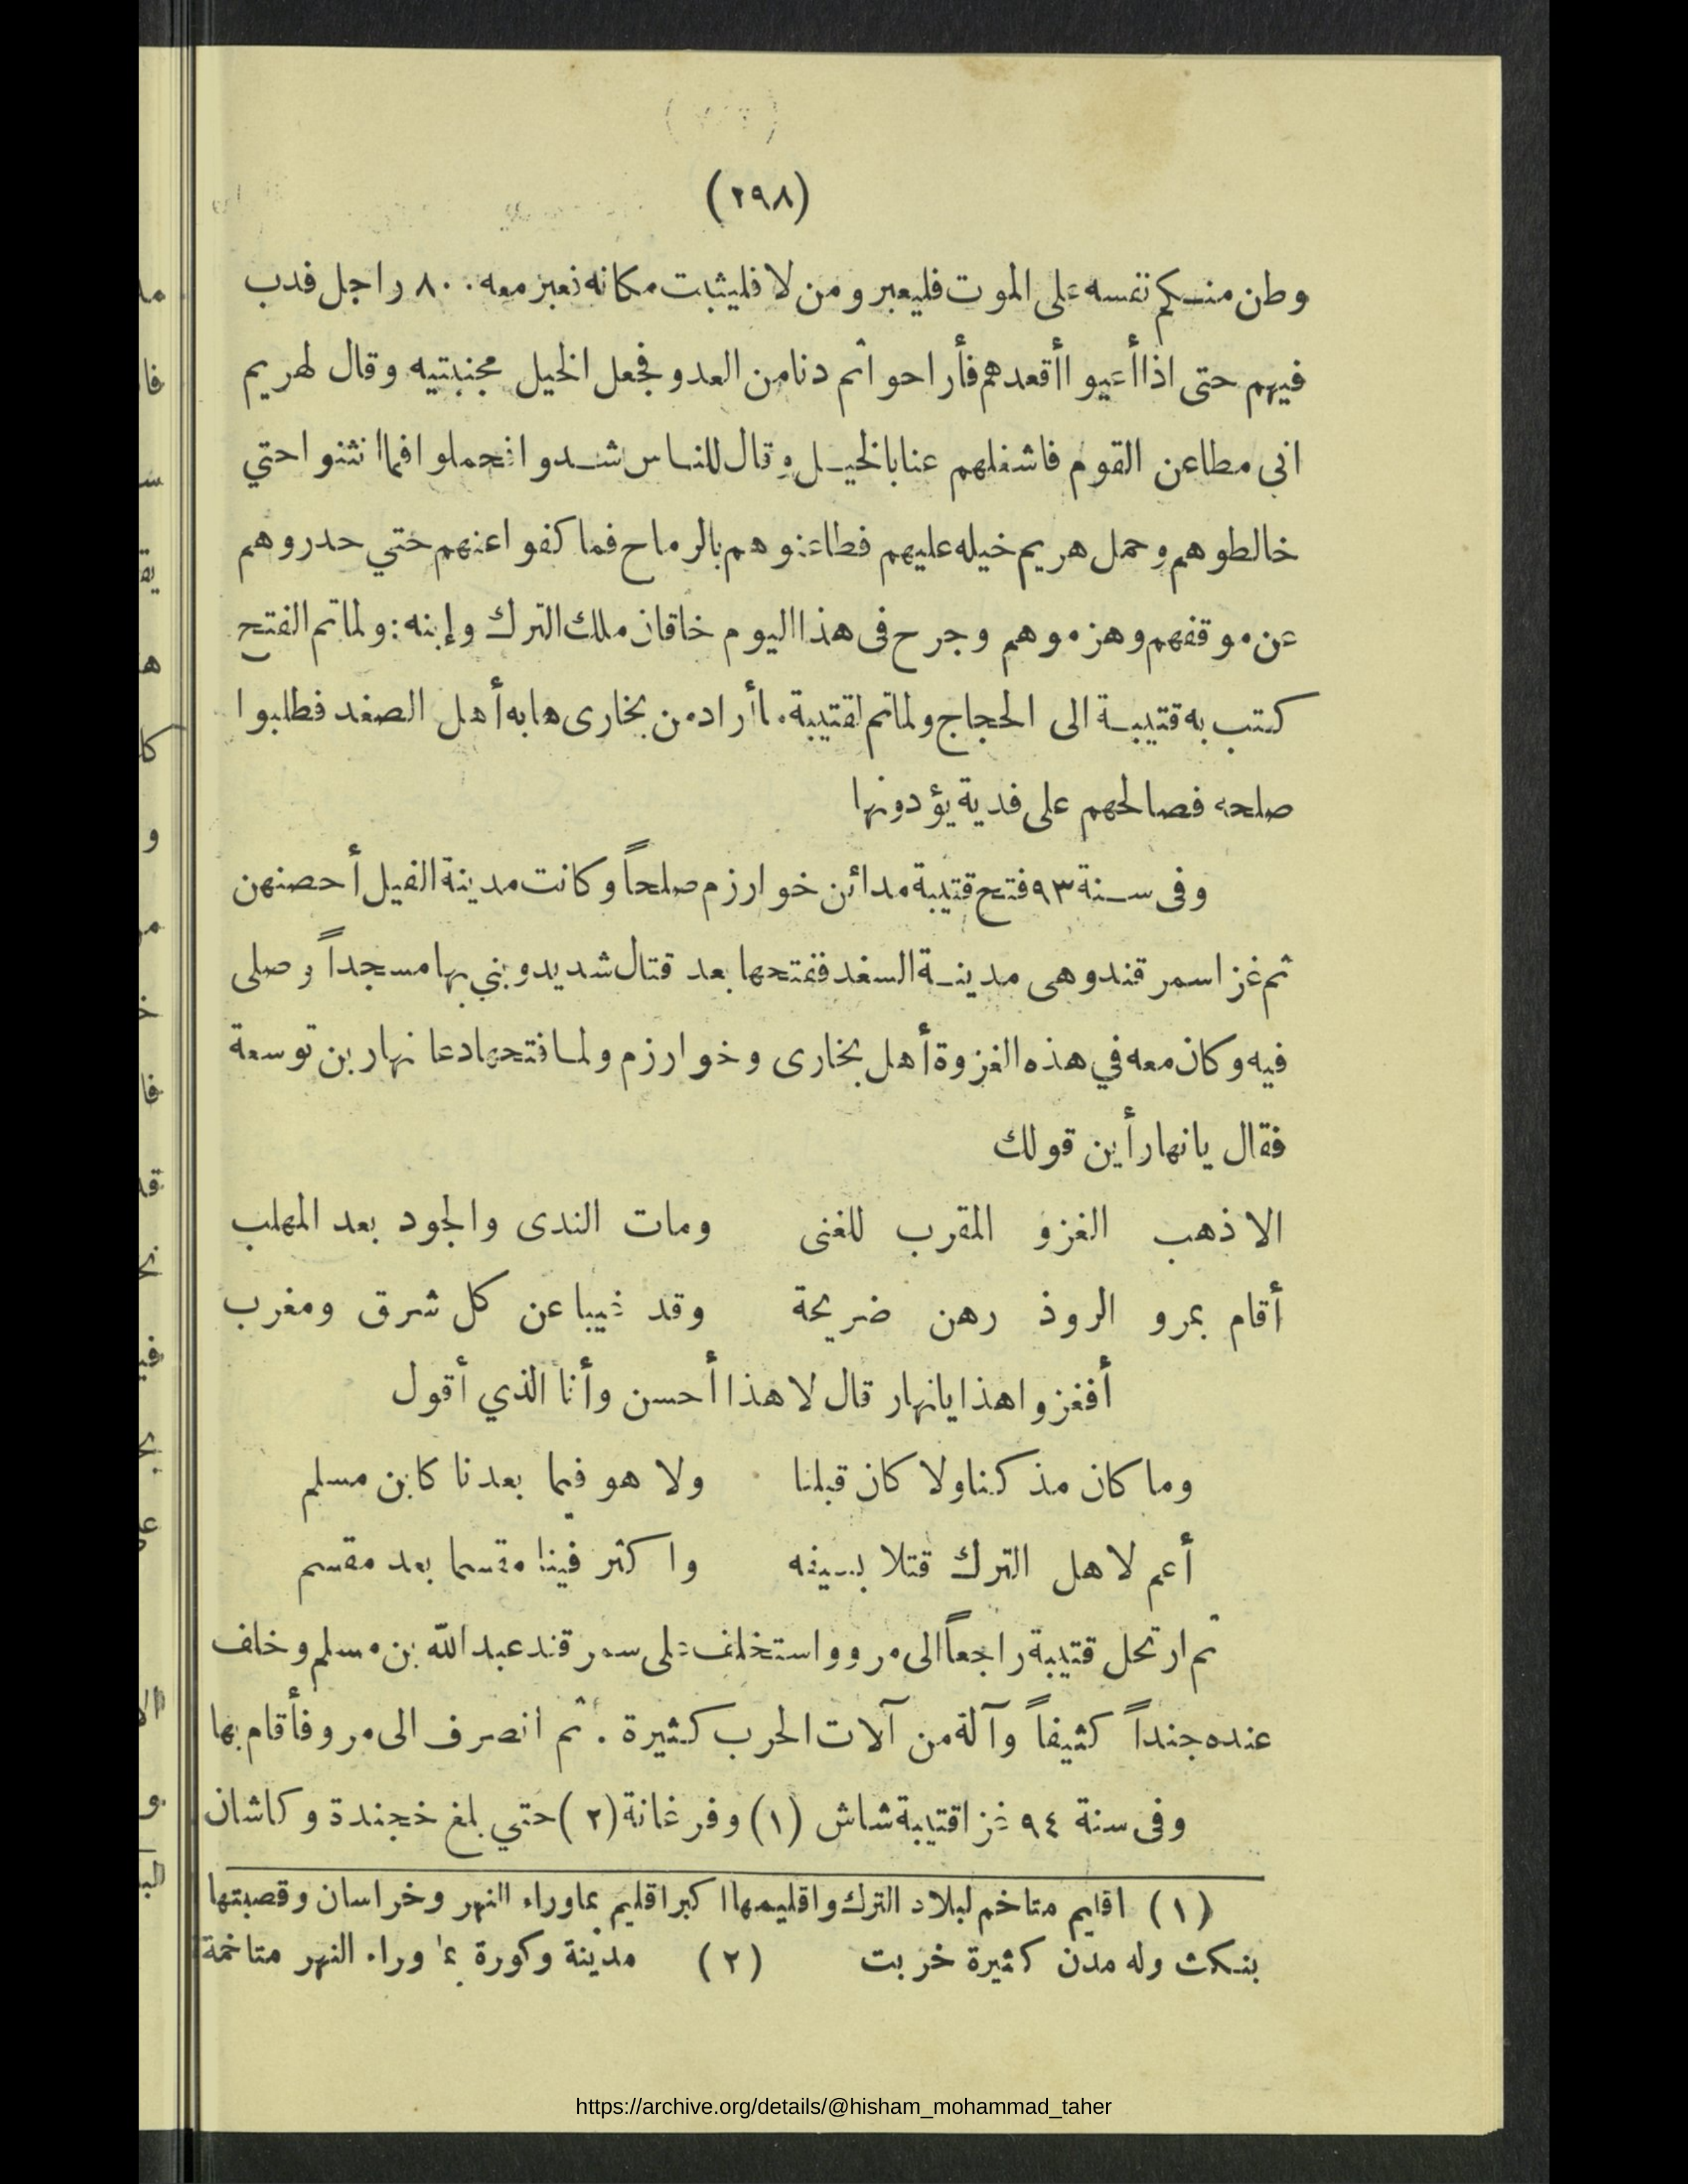 (٢٩٨)
وطن منكم نفسه على الموت فليعبر ومن لا فليثبت مكانه فعبر معه ٨٠٠ راجل فدب
فيهم حتى اذا أعيوا أقعدهم فأراحوا ثم دنا من العدو فجعل الخيل مجنبتيه وقال لهريم
انى مطاعن القوم فاشغلهم عنا بالخيل وقال للناس شدوا فحملوا فما انثنوا حتي
خالطوهم وحمل هريم خيله عليهم فطاعنوهم بالرماح فما كفوا عنهم حتي حدروهم
عن موقفهم وهزموهم وجرح فى هذا اليوم خاقان ملك الترك وإبنه : ولما تم الفتح
كتب به قتيبة الى الحجاج ولما تم لقتيبة ما أراد من بخارى هابه أهل الصغد فطلبوا
صلحه فصالحهم على فدية يؤدونها
وفى سنة ٩٣ فتح قتيبة مدائن خوارزم صلحاً وكانت مدينة الفيل أحصنهن
ثم غزا سمرقند وهى مدينة السغد ففتحها بعد قتال شديد وبني بها مسجداً وصلى
فيه وكان معه في هذه الغزوة أهل بخارى وخوارزم ولما فتحها دعا نهار بن توسعة
فقال يا نهار أين قولك
الا ذهب الغزو المقرب للغنى ومات الندى والجود بعد المهلب
أقام بمرو الروذ رهن ضريحة وقد غيبا عن كل شرق ومغرب
أفغزو اهذا يانهار قال لا هذا أحسن وأنا الذي أقول
وما كان مذ كنا ولا كان قبلنا ولا هو فيما بعدنا كابن مسلم
أعم لاهل الترك قتلا بسيفه واكثر فينا مقسما بعد مقسم
ثم ارتحل قتيبة راجعاً الى مرو واستخلف على سمرقند عبد الله بن مسلم وخلف
عنده جنداً كثيفاً وآلة من آلات الحرب كثيرة . ثم انصرف الى مرو فأقام بها
وفى سنة ٩٤ غزا قتيبة شاش (١) وفرغانة (٢) حتي بلغ خجندة وكاشان
(١) اقليم متاخم لبلاد الترك واقليمها اكبر اقليم بما وراء النهر وخراسان وقصبتها
بنكث وله مدن كثيرة خربت (٢) مدينة وكورة بما وراء النهر متاخمة
https://archive.org/details/@hisham_mohammad_taher